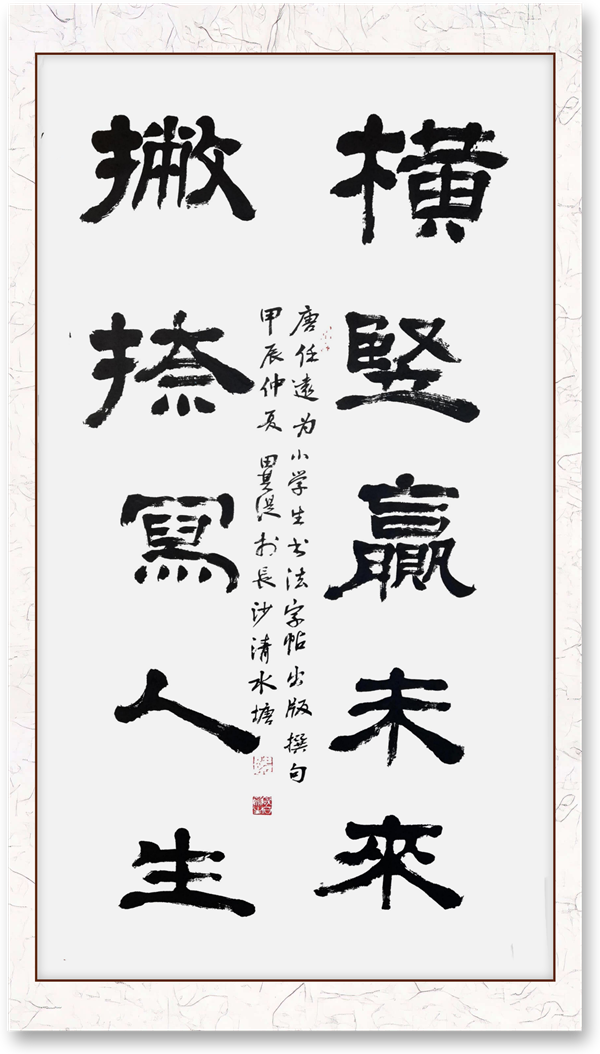 橫竖贏未來
撇捺寫人生
唐任遠为小学生书法字帖出版撰句
甲辰仲夏田異湜於長沙清水塘